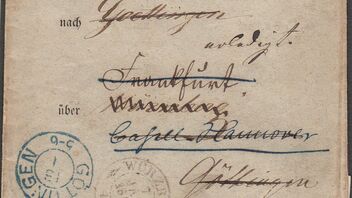 nach Goettingen
erledigt.
Frankfurt
über
Cassel Hannover
Göttingen
GÖTTINGEN
WÜRZB